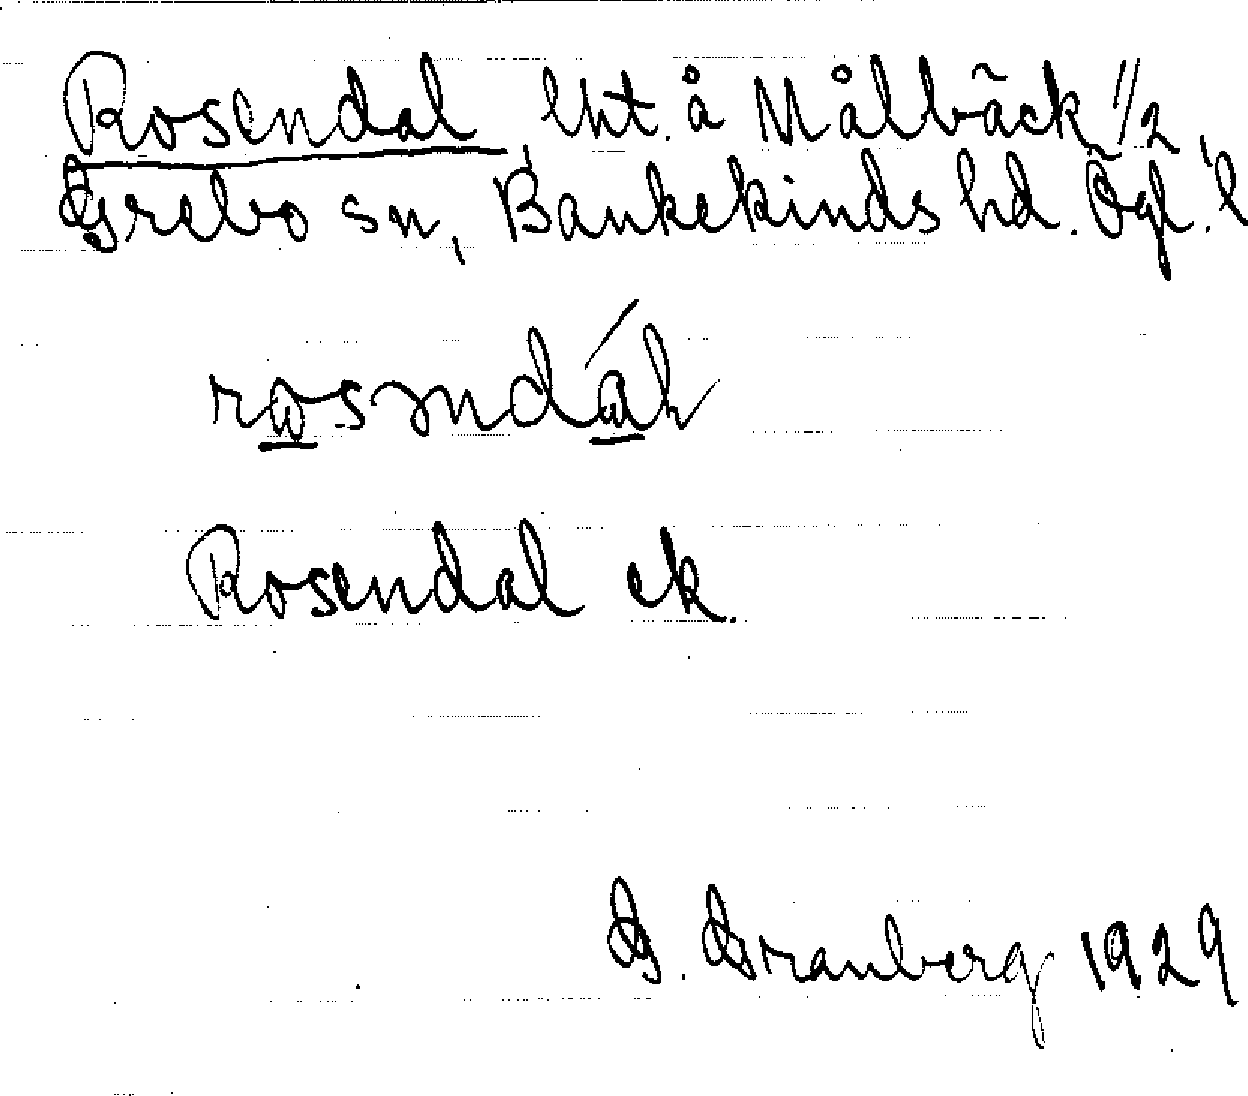 Rosendal lht. å Målbäck 1/2,
Grebo sn, Bankekinds hd. Ögl. l
Rosendal ek.
G. Granberg 1929